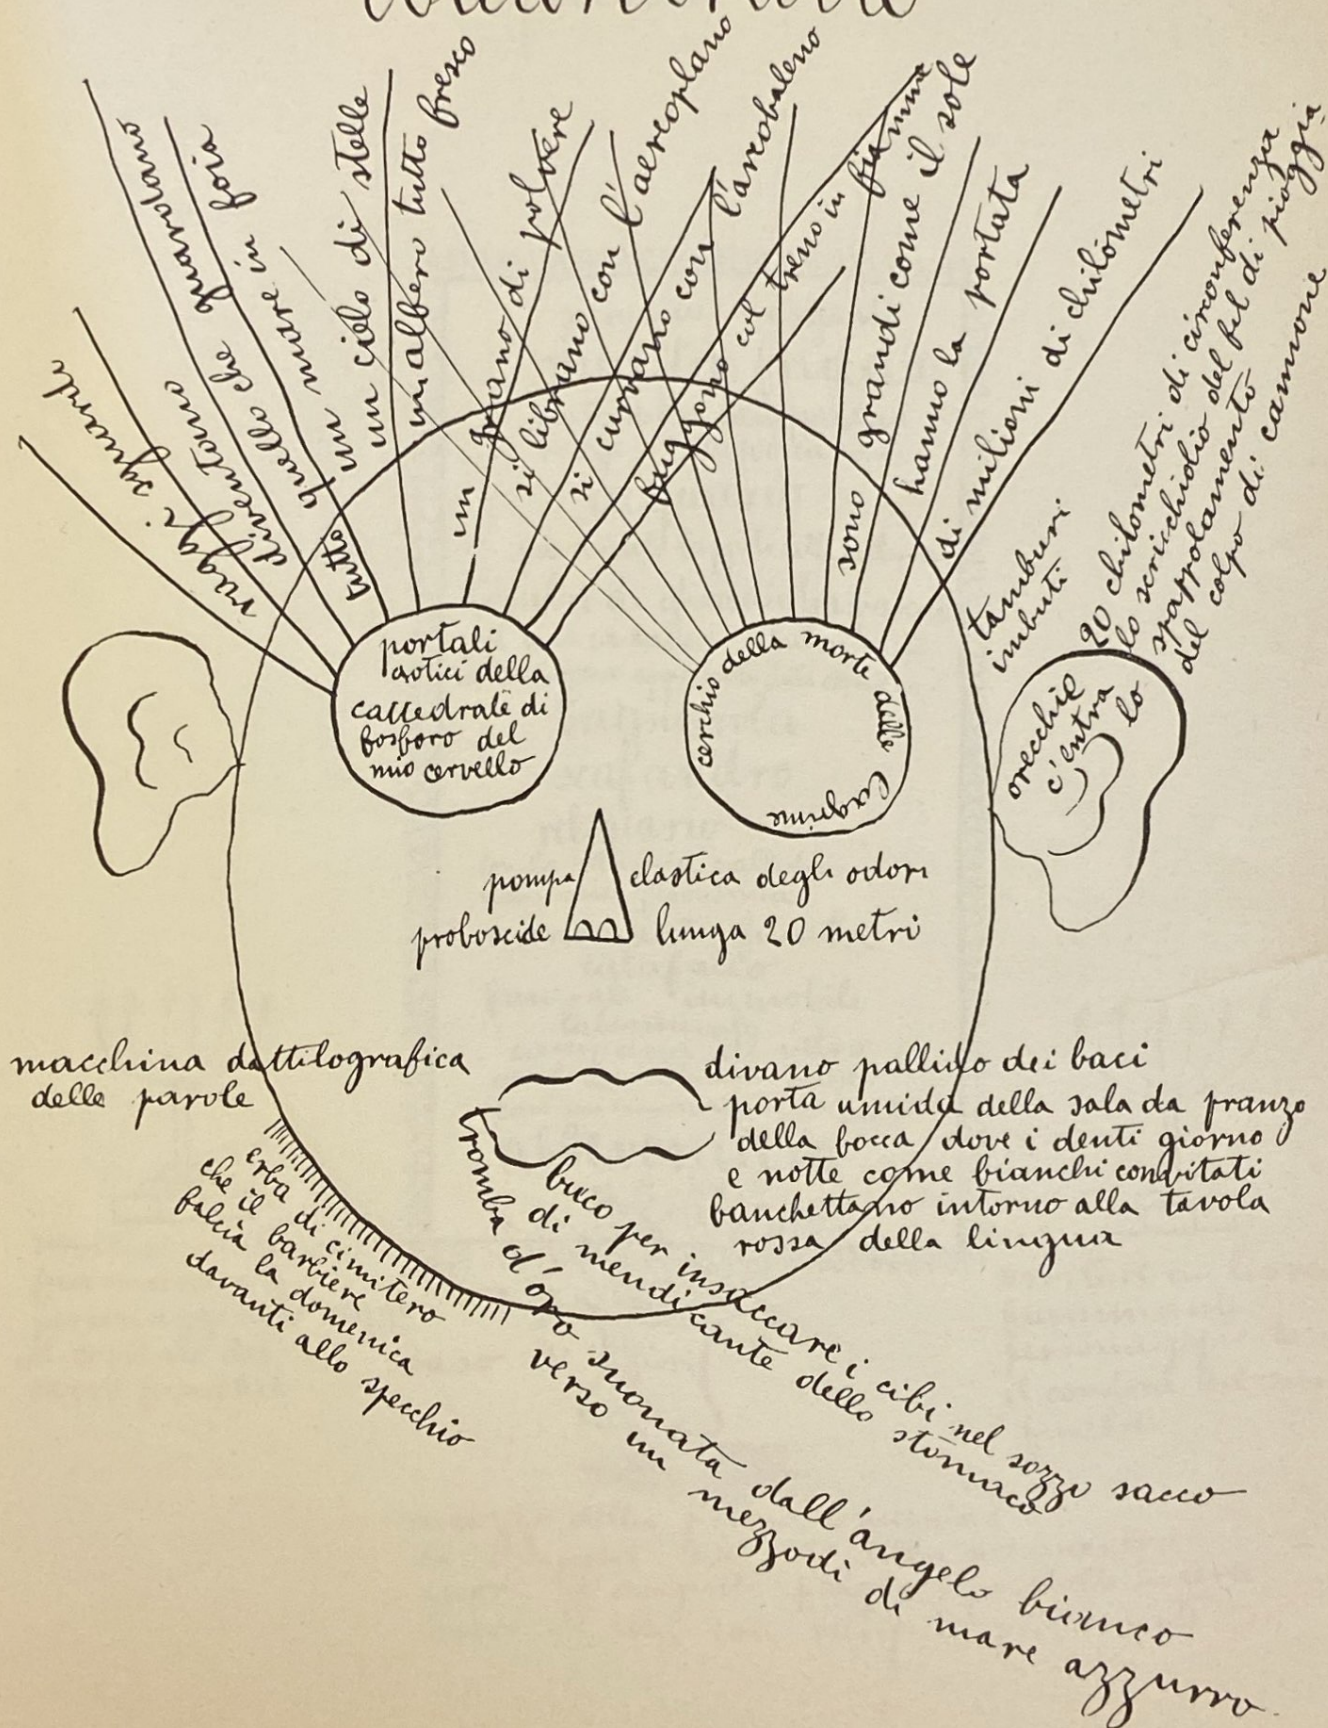 raggi sguardi
diventano
quello che guardano
tutto
un mare in foia
un cielo di stelle
un albero tutto fresco
un grano di polvere
si librano con l'aereoplano
si curvano con l'arcobaleno
fuggono col treno in fiamme
sono grandi come il sole
hanno la portata
di milioni di chilometri
tamburi
imbuti
20 chilometri di circonferenza
lo scricchiolio del fil di pioggia
spappolamento
del colpo di cannone
portali
gotici della
cattedrale di
fosforo del
mio cervello
cerchio della morte delle lagrime
orecchie
c'entra
lo
pompa elastica degli odori
proboscide lunga 20 metri
macchina dattilografica
delle parole
divano pallido dei baci
porta umida della sala da pranzo
della bocca dove i denti giorno
e notte come bianchi convitati
banchettano intorno alla tavola
rossa della lingua
erba di cimitero
che il barbiere
falcia la domenica
davanti allo specchio
buco per insaccare i cibi nel sozzo sacco
di mendicante dello stomaco
tromba d'oro suonata dall'angelo bianco
verso un mezzodì di mare azzurro